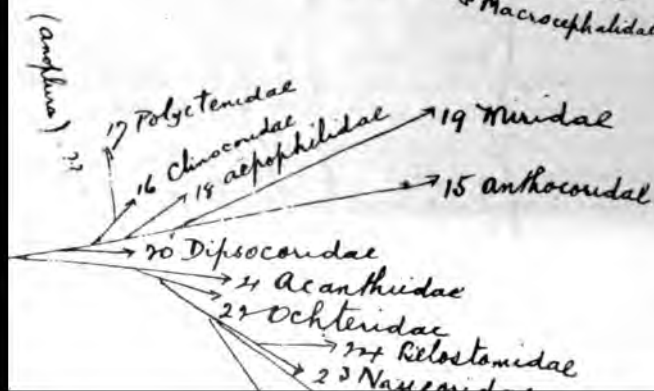 Macrocephalidae
(anoplura) ??
17 Polyctenidae
16 Clinocoridae
18 aepophilidae
19 Miridae
15 anthocoridae
20 Dipsocoridae
21 Acanthiidae
22 Ochteridae
24 Belostomidae
23 Naucoridae